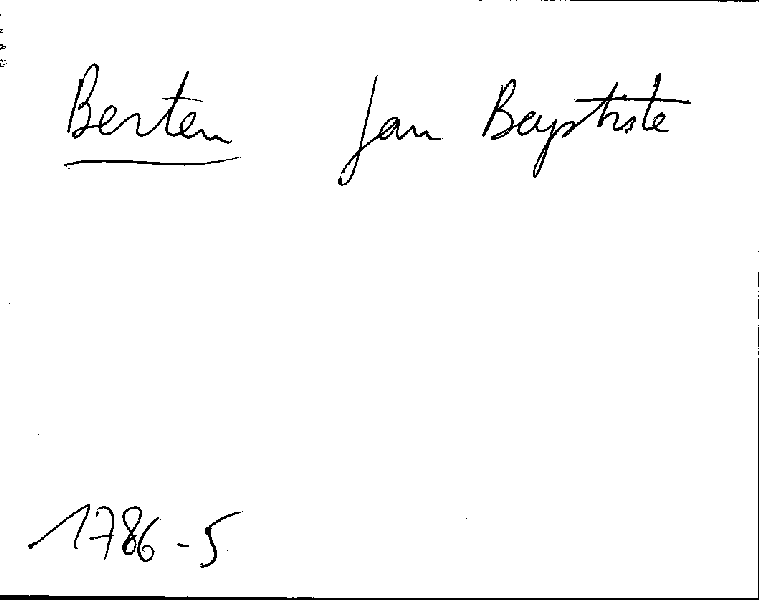 Berten Jan Baptiste
1786-5